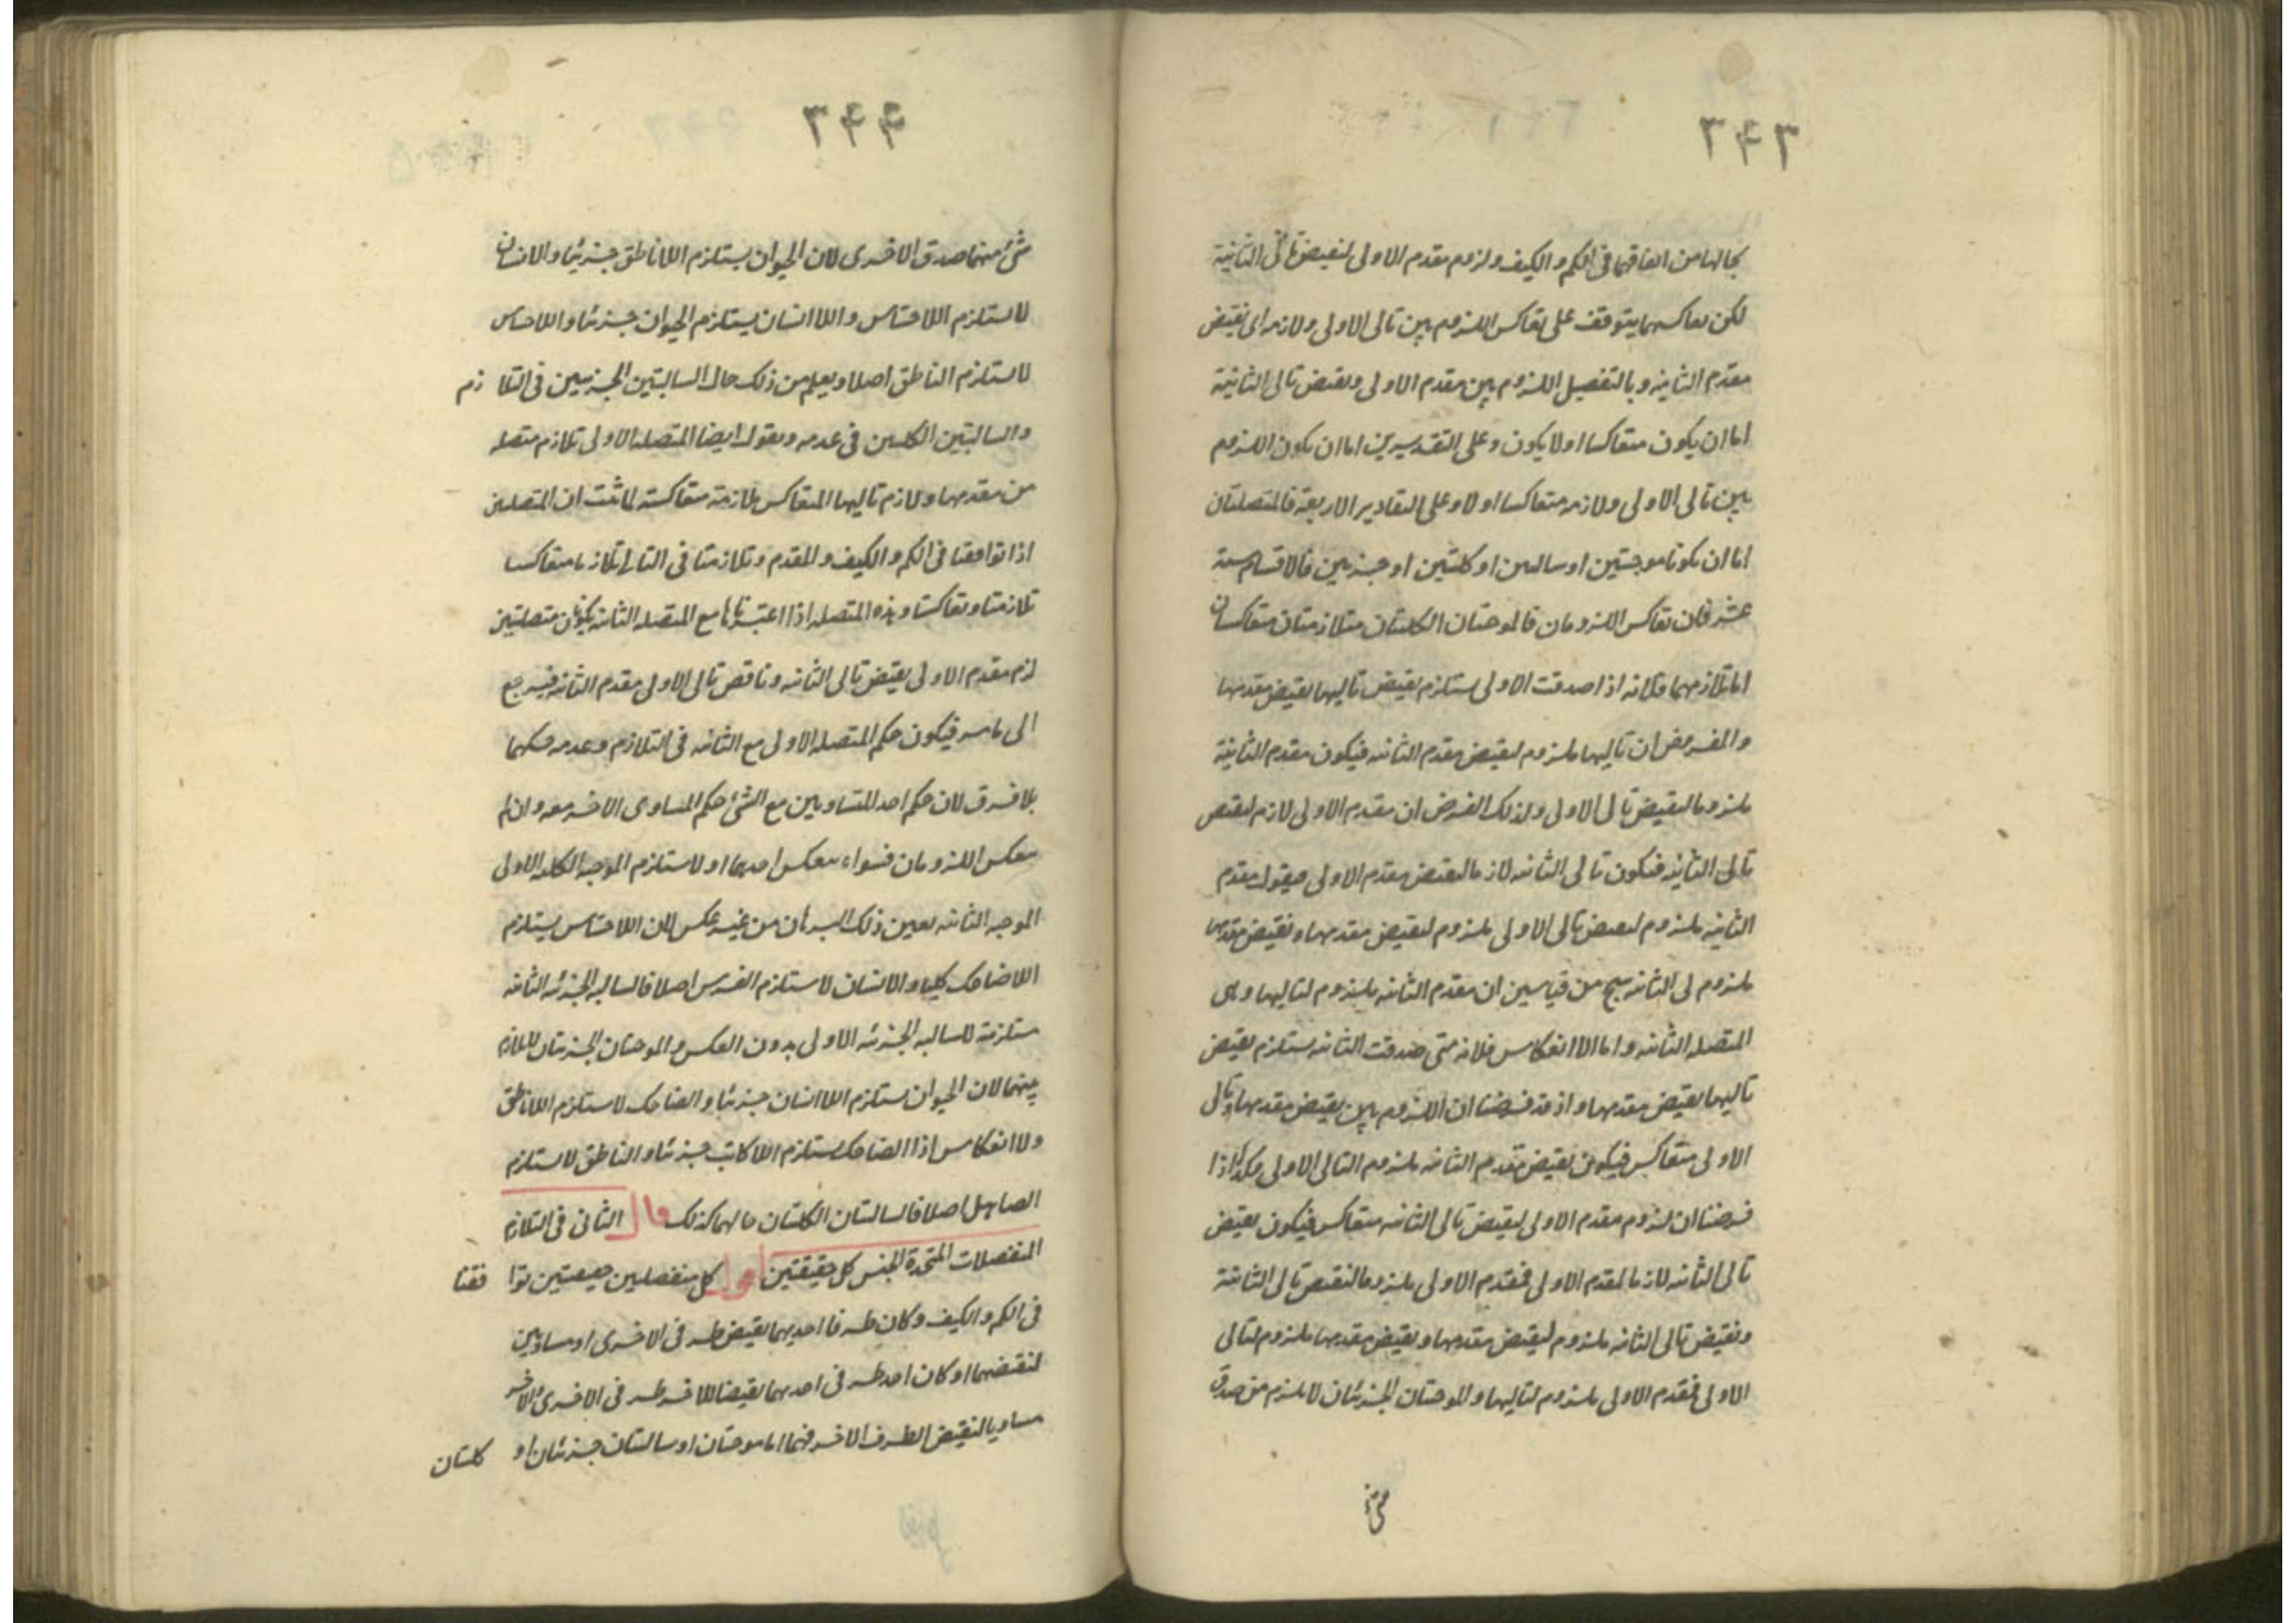 ٣٤٣
بحالها من اتفاقهما فى الكم والكيف ولزوم مقدم الاولى لنقيض تالى الثانية
لكن تعاكسهما يتوقف على تعاكس اللزوم بين تالى الاولى ولازمه اى نقيض
مقدم الثانية وبالتفصيل اللزوم بين مقدم الاولى ونقيض تالى الثانية
اما ان يكون متعاكسا اولا يكون وعلى التقديرين اما ان يكون اللزوم
بين تالى الاولى ولازمه متعاكسا اولا وعلى التقادير الاربعة فالمتصلتان
اما ان تكونا موجبتين او سالبتين او كليتين او جزئيتين فالاقسام ستة
عشر فان تعاكس اللزومان فالموجبتان الكليتان متلازمتان متعاكستان
اما تلازمهما فلانه اذا صدقت الاولى يستلزم نقيض تاليها نقيض مقدمها
والمفروض ان تاليها ملزوم لنقيض مقدم الثانية فيكون مقدم الثانية
ملزوما لنقيض تالى الاولى وكذلك الفرض ان مقدم الاولى لازم لنقيض
تالى الثانية فيكون تالى الثانية لازما لنقيض مقدم الاولى فيقول مقدم
الثانية ملزوم لنقيض تالى الاولى ملزوم لنقيض مقدمها ونقيض مقدمها
ملزوم لى الثانية ينتج من قياسين ان مقدم الثانية ملزوم لتاليها وهى
المتصلة الثانية واما الانعكاس فلانه متى صدقت الثانية يستلزم نقيض
تاليها نقيض مقدمها واذ قد فرضنا ان اللزوم بين نقيض مقدمها وتالى
الاولى متعاكس فيكون نقيض مقدم الثانية ملزوم التالى الاولى وكذا اذا
فرضنا ان لزوم مقدم الاولى لنقيض تالى الثانية متعاكس فيكون نقيض
تالى الثانية لازما لمقدم الاولى فمقدم الاولى ملزوما لنقيض تالى الثانية
ونقيض تالى الثانية ملزوم لنقيض مقدمها ونقيض مقدمها ملزوم لتالى
الاولى فمقدم الاولى ملزوم لتاليها والموجبتان الجزئيتان لا يلزم من صدق
شئ
٣٤٤
شئ منهما صدق الاخرى لان الحيوان يستلزم اللاناطق جزئيا والانسان
لا يستلزم اللاحساس واللاانسان يستلزم الحيوان جزئيا واللاحساس
لا يستلزم الناطق اصلا ويعلم من ذلك حال السالبتين الجزئيتين فى التلازم
والسالبتين الكليتين فى عدمه ونقول ايضا المتصلة الاولى تلازم متصلة
من مقدمها ولازم تاليها المتعاكس ملازمة متعاكسة لما ثبت ان المتصلتين
اذا توافقتا فى الكم والكيف والمقدم وتلازمتا فى التالى تلازما متعاكسا
تلازمتا وتعاكستا وهذه المتصلة اذا اعتبرناها مع المتصلة الثانية يكونان متصلتين
لزم مقدم الاولى نقيض تالى الثانية وناقض تالى الاولى مقدم الثانية فيرجع
الى ما مر فيكون حكم المتصلة الاولى مع الثانية فى التلازم وعدمه حكمها
بلا فرق لان حكم احد المتساويين مع الشئ حكم المساوى الاخر معه وان لم
يتعكس اللزومان فسواء يتعكس احدهما اولا يستلزم الموجبة الكلية الاولى
الموجبة الثانية بعين ذلك البرهان من غير عكس لان اللاحساس يستلزم
اللاضاحك كليا والانسان لا يستلزم الفرس اصلا فالسالبة الجزئية الثانية
مستلزمة للسالبة الجزئية الاولى بدون العكس والموجبتان الجزئيتان لا تلازم
بينهما لان الحيوان يستلزم اللاانسان جزئيا والضاحك لا يستلزم اللاناطق
ولا انعكاس اذ الضاحك يستلزم اللاكاتب جزئيا والناطق لا يستلزم
الصاهل اصلا فالسالبتان الكليتان حالهما كذلك قال الثانى فى التلازم
المنفصلات المتحدة الجنس كل حقيقتين اقول كل منفصلتين حقيقيتين توافقتا
فى الكم والكيف وكان طرفا احديهما نقيض طرفى الاخرى او مساويين
لنقيضهما او كان احد طرفى احديهما نقيضا للاخر طرفى الاخرى والاخر
مساويا لنقيض الطرف الاخر فهما اما موجبتان او سالبتان جزئيتان او كليتان